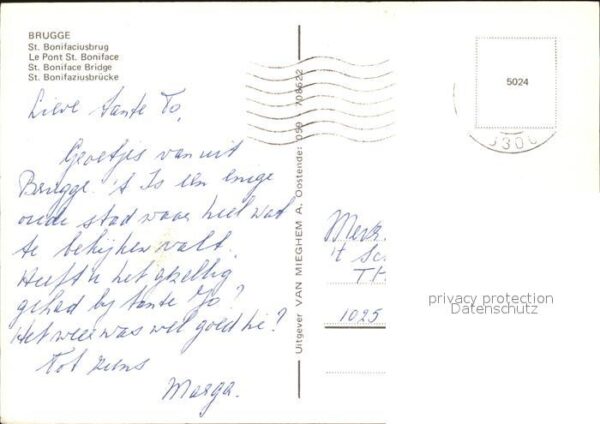 BRUGGE
St. Bonifaciusbrug
Le Pont St. Boniface
St. Boniface Bridge
St. Bonifaziusbrücke
Lieve tante To,
Groetjes vanuit
Brugge. 't Is een enige
oude stad waar heel wat
te bekijken valt.
Heeft u het gezellig
gehad by tante Jo?
Het weer was wel goed hè?
Tot ziens
Marga.
Uitgever VAN MIEGHEM A. Oostende: 059 - 708622
5024
Mevr.
't Sc
TH
1025
privacy protection
Datenschutz